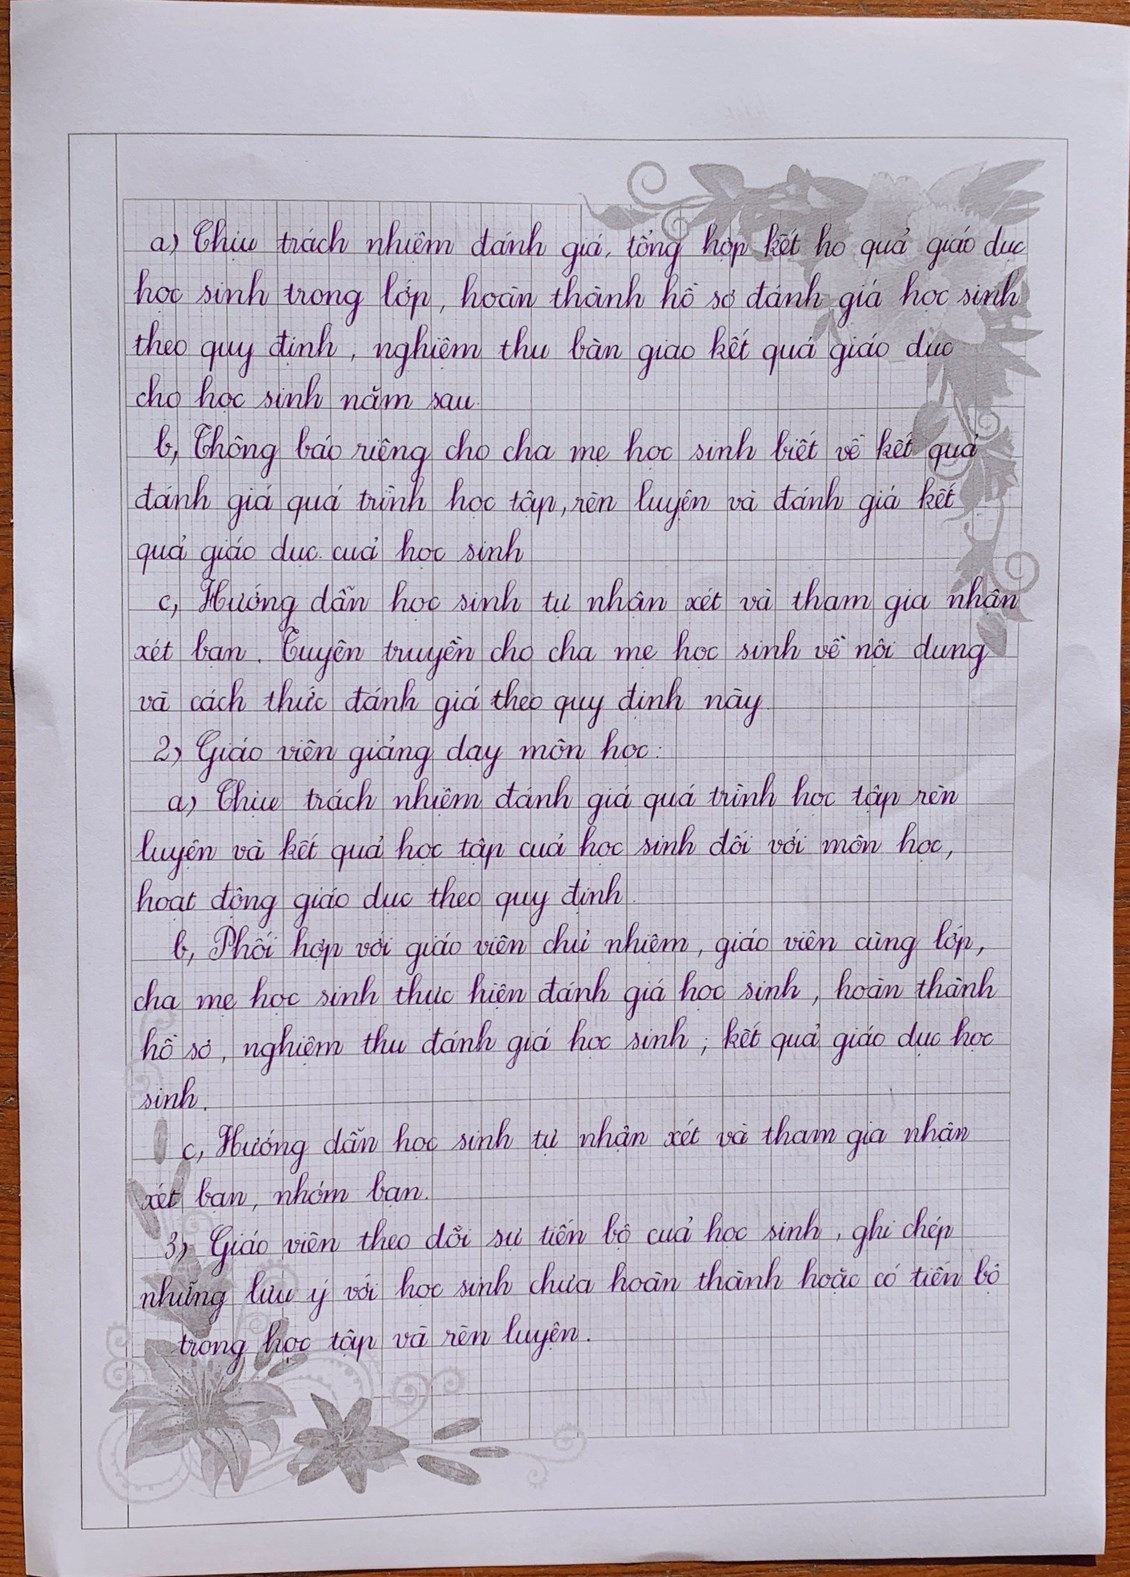 a) Chịu trách nhiệm đánh giá, tổng hợp kết ho quả giáo dục
học sinh trong lớp, hoàn thành hồ sơ đánh giá học sinh
theo quy định, nghiệm thu bàn giao kết quả giáo dục
cho học sinh năm sau.
b, Thông báo riêng cho cha mẹ học sinh biết về kết quả
đánh giá quá trình học tập, rèn luyện và đánh giá kết
quả giáo dục của học sinh
c, Hướng dẫn học sinh tự nhận xét và tham gia nhận
xét bạn. Tuyên truyền cho cha mẹ học sinh về nội dung
và cách thức đánh giá theo quy định này
2) Giáo viên giảng dạy môn học:
a) Chịu trách nhiệm đánh giá quá trình học tập rèn
luyện và kết quả học tập của học sinh đối với môn học,
hoạt động giáo dục theo quy định.
b, Phối hợp với giáo viên chủ nhiệm, giáo viên cùng lớp,
cha mẹ học sinh thực hiện đánh giá học sinh, hoàn thành
hồ sơ, nghiệm thu đánh giá học sinh; kết quả giáo dục học
sinh.
c, Hướng dẫn học sinh tự nhận xét và tham gia nhận
xét bạn, nhóm bạn.
3) Giáo viên theo dõi sự tiến bộ của học sinh, ghi chép
những lưu ý với học sinh chưa hoàn thành hoặc có tiến bộ
trong học tập và rèn luyện.